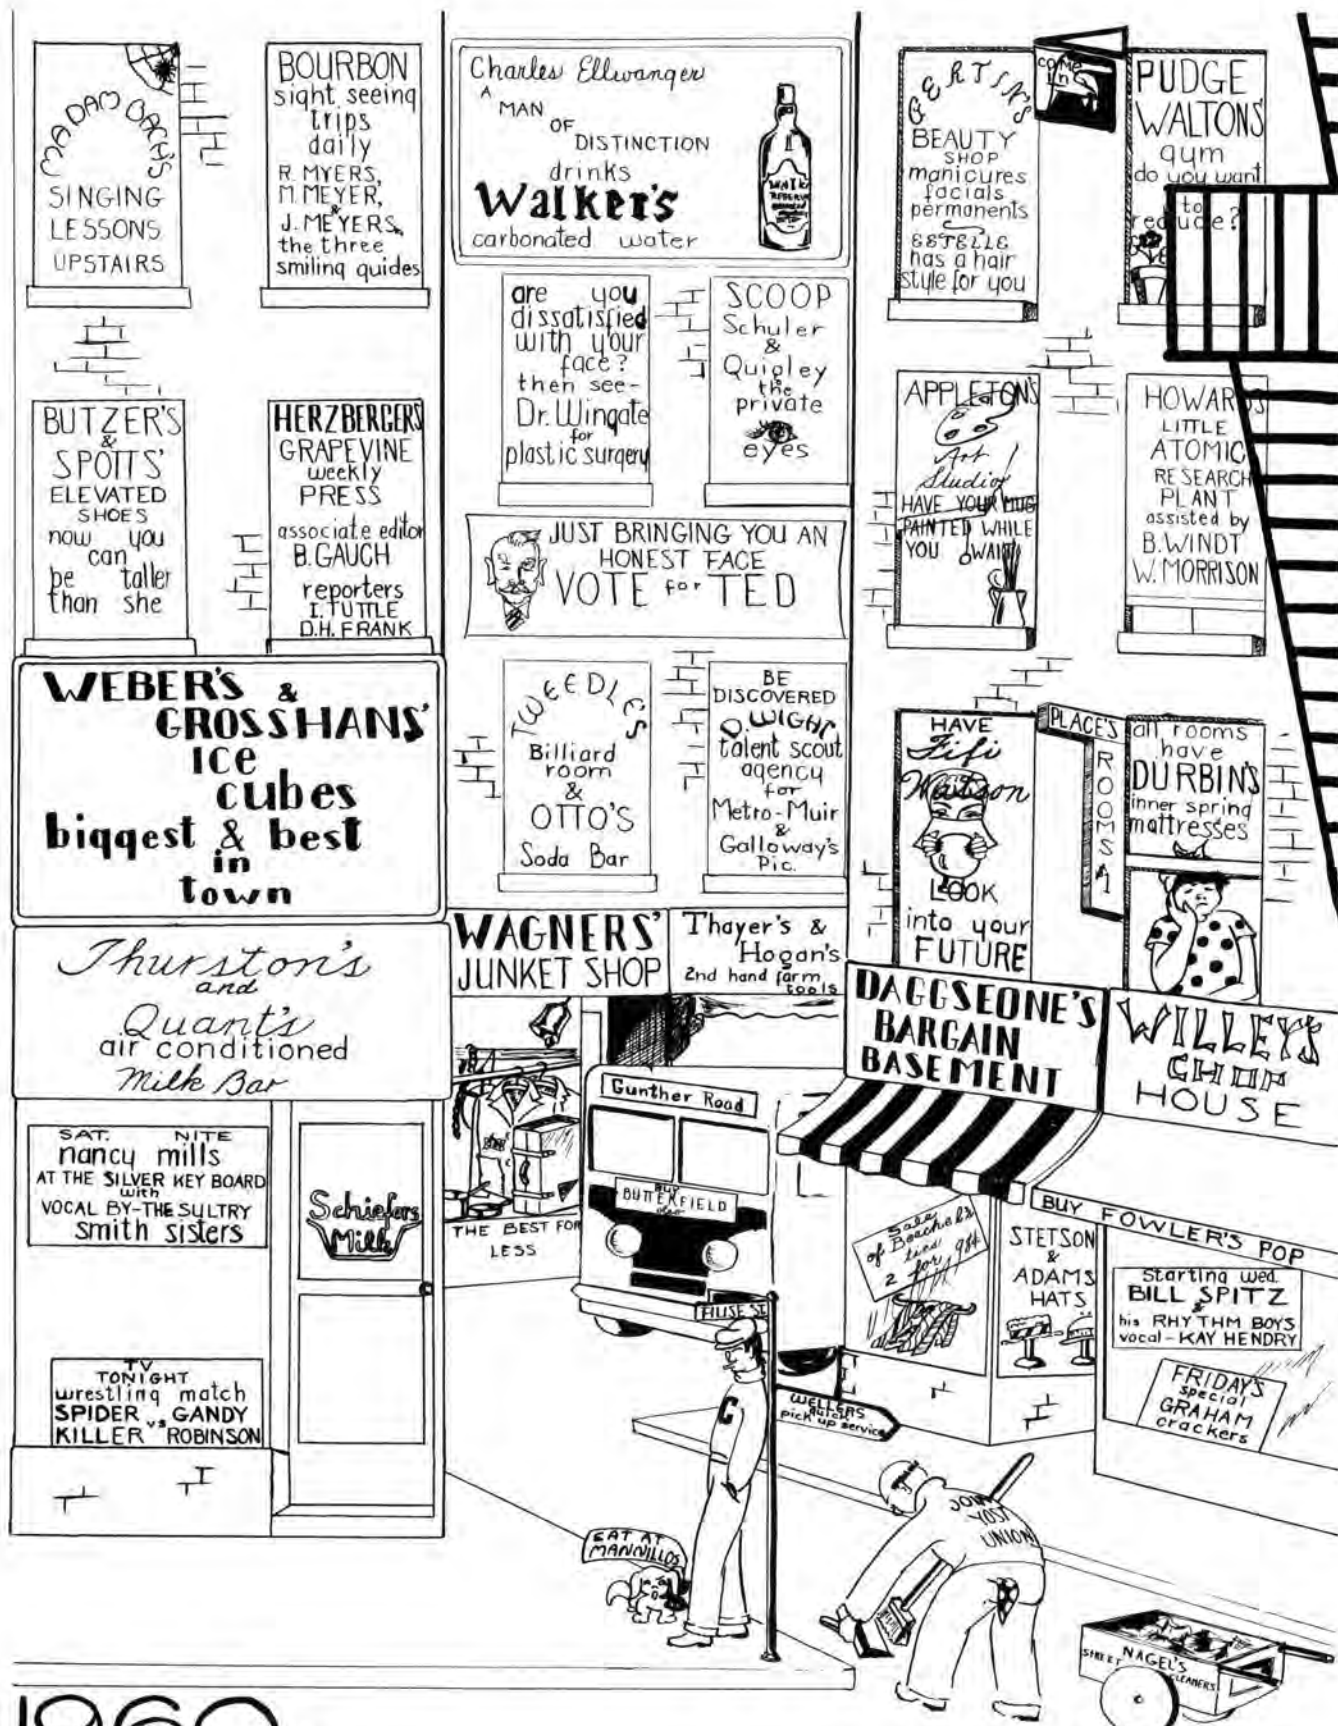 MADAM BACH'S
SINGING
LESSONS
UPSTAIRS
BOURBON
sight seeing
trips
daily
R. MYERS,
M. MEYER,
&
J. MEYERS,
the three
smiling guides
Charles Ellwanger
A
MAN
OF
DISTINCTION
drinks
Walker's
carbonated water
GERTIN'S
BEAUTY
SHOP
manicures
facials
permanents
ESTELLE
has a hair
style for you
come
in
PUDGE
WALTON'S
gym
do you want
to
reduce?
BUTZER'S
&
SPOTTS'
ELEVATED
SHOES
now you
can
be taller
than she
HERZBERGERS
GRAPEVINE
weekly
PRESS
associate editor
B. GAUCH
reporters
I. TUTTLE
D.H. FRANK
are you
dissatisfied
with your
face?
then see-
Dr. Wingate
for
plastic surgery
SCOOP
Schuler
&
Quigley
the
private
eyes
APPLETON'S
Art
Studio
HAVE YOUR MUG
PAINTED WHILE
YOU WAIT
HOWARD'S
LITTLE
ATOMIC
RESEARCH
PLANT
assisted by
B. WINDT
W. MORRISON
JUST BRINGING YOU AN
HONEST FACE
VOTE for TED
WEBER'S &
GROSSHANS'
ice
cubes
biggest & best
in
town
TWEEDLES
Billiard
room
&
OTTO'S
Soda Bar
BE
DISCOVERED
D. WIGHT
talent scout
agency
for
Metro-Muir
&
Galloway's
Pic.
HAVE
Fifi
Watson
LOOK
into your
FUTURE
PLACE'S
ROOMS
$1
all rooms
have
DURBIN'S
inner spring
mattresses
Thurston's
and
Quant's
air conditioned
Milk Bar
WAGNERS'
JUNKET SHOP
Thayer's &
Hogan's
2nd hand farm
tools
DAGGSEONE'S
BARGAIN
BASEMENT
WILLEY'S
CHOP
HOUSE
SAT. NITE
nancy mills
AT THE SILVER KEY BOARD
with
VOCAL BY-THE SULTRY
smith sisters
Schiefers
Milk
THE BEST FOR
LESS
Gunther Road
BUY
BUTTERFIELD
BUY FOWLER'S POP
Sale
of Beachel's
ties
2 for 98¢
STETSON
&
ADAMS
HATS
Starting wed.
BILL SPITZ
&
his RHYTHM BOYS
vocal-KAY HENDRY
FRIDAY'S
special
GRAHAM
crackers
TV
TONIGHT
wrestling match
SPIDER vs GANDY
KILLER ROBINSON
C
WELLERS
quick
pick up service
EAT AT
MANNILLOS
JOIN
YOST
UNION
NAGEL'S
STREET CLEANERS
1960